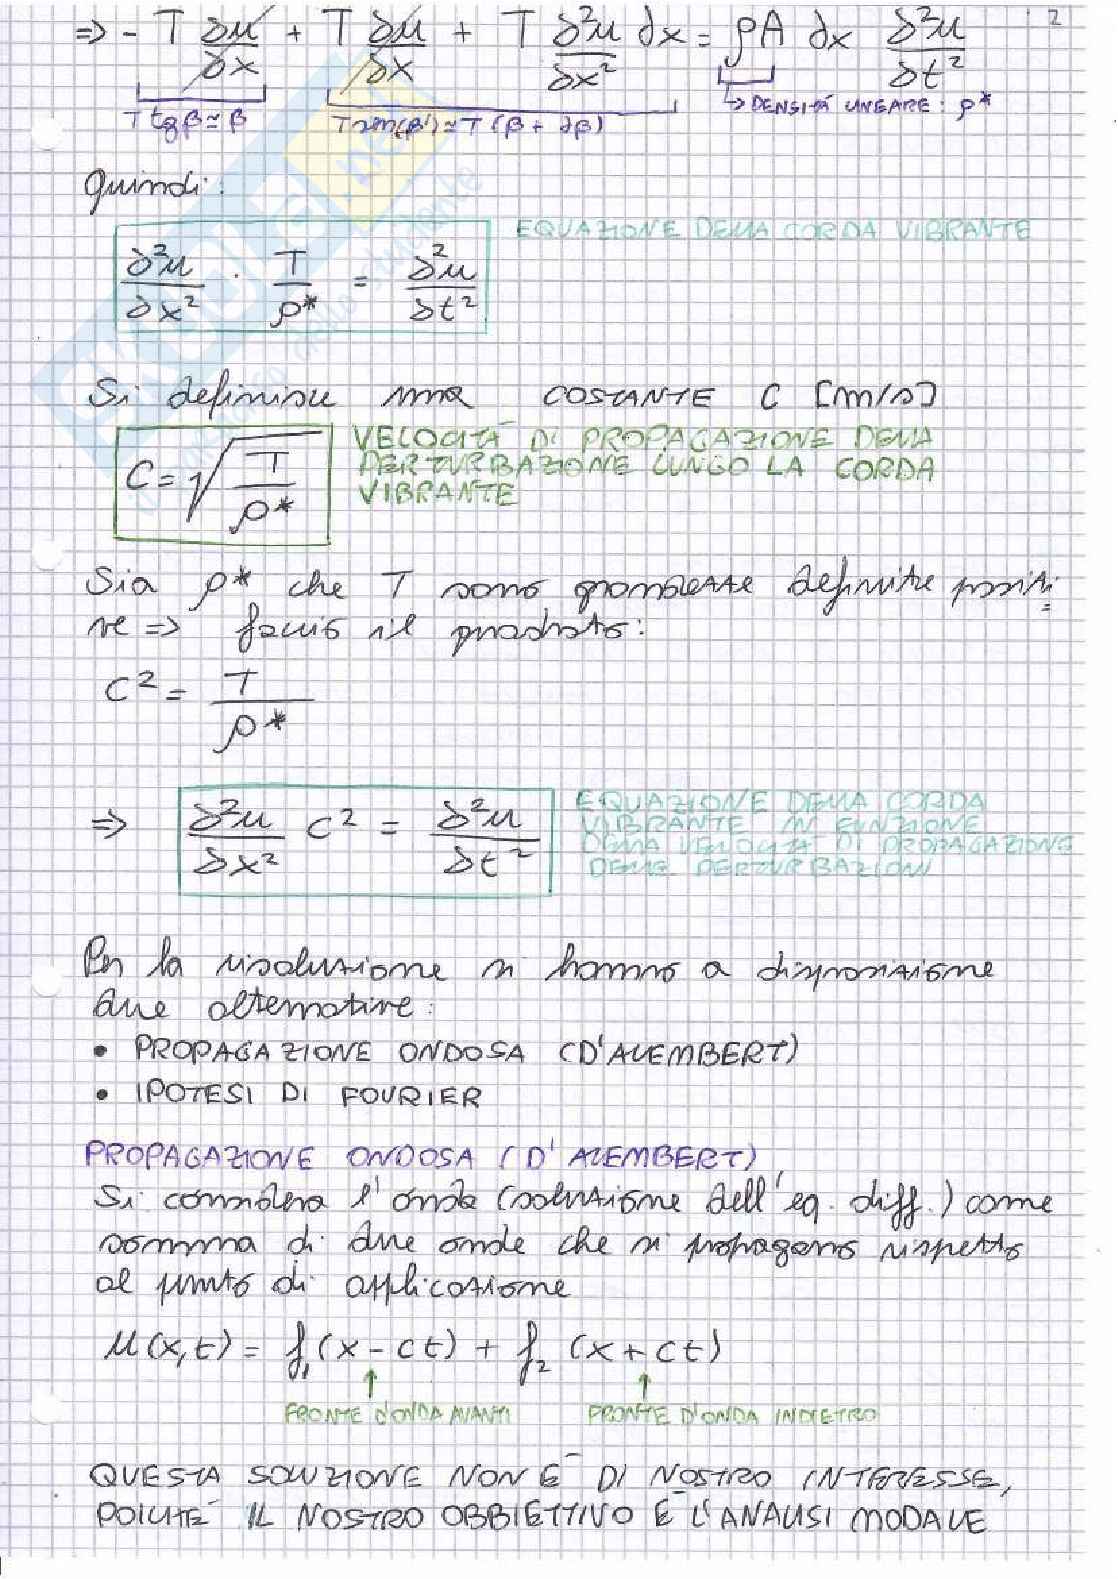 2
⇒ - T ∂u/∂x + T ∂u/∂x + T ∂²u/∂x² dx = ρA dx ∂²u/∂t²
T tgβ ≃ β
T sin(β') ≃ T (β + ∂β)
↳ DENSITÀ LINEARE: ρ*
Quindi:
EQUAZIONE DELLA CORDA VIBRANTE
∂²u/∂x² · T/ρ* = ∂²u/∂t²
Si definisce una COSTANTE C [m/s]
C = √(T/ρ*)
VELOCITÀ DI PROPAGAZIONE DELLA
PERTURBAZIONE LUNGO LA CORDA
VIBRANTE
Sia ρ* che T sono grandezze definite positi-
ve => faccio il quadrato:
C² = T/ρ*
⇒ ∂²u/∂x² C² = ∂²u/∂t²
EQUAZIONE DELLA CORDA
VIBRANTE IN FUNZIONE
DELLA VELOCITÀ DI PROPAGAZIONE
DELLE PERTURBAZIONI
Per la risoluzione si hanno a disposizione
due alternative:
• PROPAGAZIONE ONDOSA (D'ALEMBERT)
• IPOTESI DI FOURIER
PROPAGAZIONE ONDOSA (D'ALEMBERT)
Si considera l'onda (soluzione dell'eq. diff.) come
somma di due onde che si propagano rispetto
al punto di applicazione
u(x,t) = f₁(x - ct) + f₂(x + ct)
FRONTE D'ONDA AVANTI
FRONTE D'ONDA INDIETRO
QUESTA SOLUZIONE NON È DI NOSTRO INTERESSE,
POICHÉ IL NOSTRO OBBIETTIVO È L'ANALISI MODALE